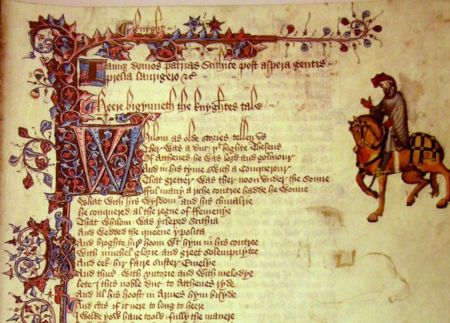 Knyght
Iamque domos patrias Scithice post aspera gentis
prelia laurigero &c
Heere bigynneth the knyghtes tale
Whilom as olde stories tellen vs
Ther was a duc þt highte Theseus
Of Atthenes he was lord and gouernour
And in his tyme swich a Conquerour
That gretter was ther noon vnder the sonne
fful many a riche contree hadde he wonne
What with his wysdom and his chiualrie
He conquered al the regne of ffemenye
That whilom was ycleped Scithia
And wedded the queene ypolita
And broghte hir hoom with hym in his contree
With muchel glorie and greet solempnytee
And eek hir faire suster Emelye
And thus with victorie and with melodye
Lete I this noble duc to Atthenes ryde
And al his hoost in Armes hym bisyde
And certes if it nere to long to heere
I wolde yow haue toold fully the manere